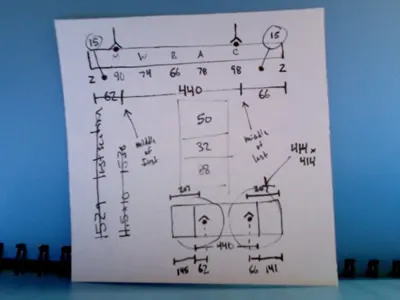 15 15
M W B A C
2 90 74 66 78 98 2
62 440 66
middle of first
middle of last
50
32
88
414 x 414
1529
1536
207
440
145 62 66 141